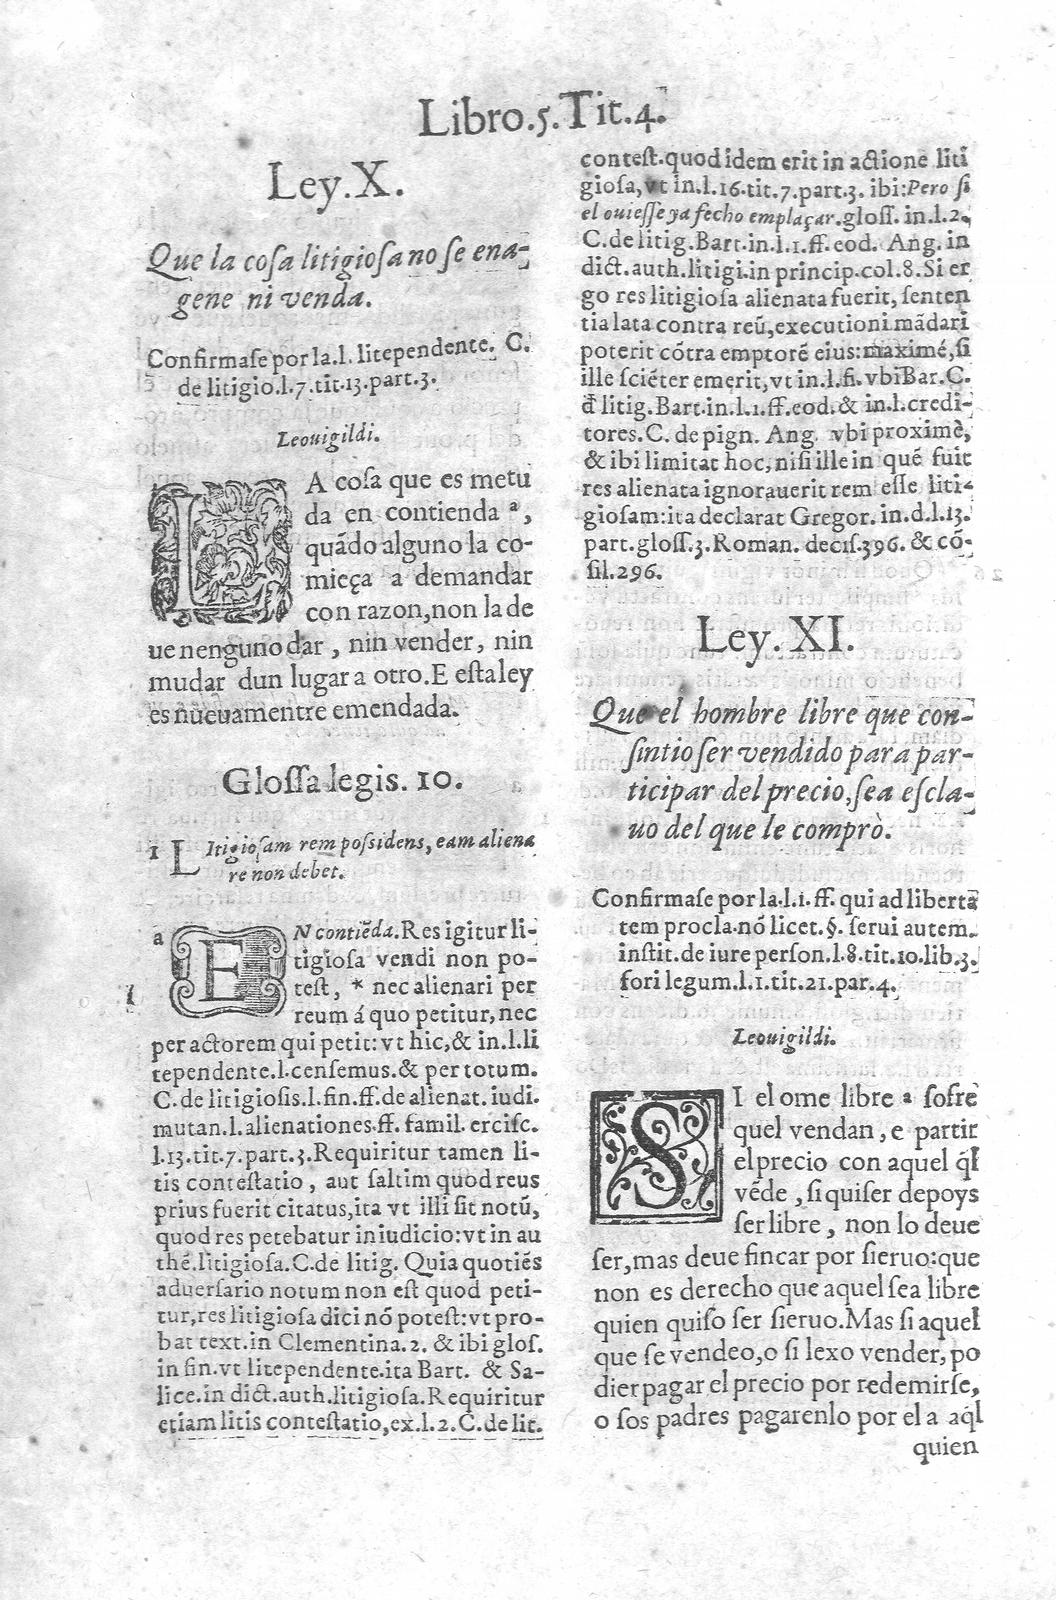 Libro.5.Tit.4.
Ley.X.
Que la coſa litigioſa no ſe ena-
gene ni venda.
Confirmaſe por la.l. litependente. C.
de litigio.l.7.tit.13.part.3.
Leouigildi.
LA coſa que es metu
da en contienda ª,
quãdo alguno la co-
mieça a demandar
con razon,non la de
ue nenguno dar , nin vender, nin
mudar dun lugar a otro.E eſta ley
es nueuamentre emendada.
Gloſſa legis. 10.
1 Litigioſam rem poſsidens, eam aliena
re non debet.
a EN contiẽda.Res igitur li-
tigioſa vendi non po-
teſt, * nec alienari per
1 reum á quo petitur, nec
per actorem qui petit: vt hic,& in.l.li
tependente.l.cenſemus.& per totum.
C.de litigioſis.l.fin.ff.de alienat. iudi.
mutan.l.alienationes.ff. famil. erciſc.
l.13.tit.7.part.3.Requiritur tamen li-
tis conteſtatio , aut ſaltim quod reus
prius fuerit citatus,ita vt illi ſit notũ,
quod res petebatur in iudicio:vt in au
thẽ.litigioſa.C.de litig. Quia quotiẽs
aduerſario notum non eſt quod peti-
tur,res litigioſa dici nõ poteſt:vt pro-
bat text.in Clementina.2. & ibi gloſ.
in fin.vt litependente.ita Bart. & Sa-
lice.in dict.auth.litigioſa.Requiritur
etiam litis conteſtatio,ex.l.2.C.de lit.
conteſt.quod idem erit in actione liti
gioſa,vt in.l.16.tit.7.part.3. ibi:Pero ſi
el ouieſſe ya fecho emplaçar.gloſſ. in.l.2.
C.de litig.Bart.in.l.1.ff.eod. Ang. in
dict.auth.litigi.in princip.col.8.Si er
go res litigioſa alienata fuerit, ſenten
tia lata contra reũ,executioni mãdari
poterit cõtra emptorẽ eius:maximé,ſi
ille ſciẽter emerit,vt in.l.fi.vbi Bar.C.
đ litig.Bart.in.l.1.ff.eod.& in.l.credi-
tores.C. de pign. Ang. vbi proximè,
& ibi limitat hoc, niſi ille in quẽ fuit
res alienata ignorauerit rem eſſe liti-
gioſam:ita declarat Gregor. in.d.l.13.
part.gloſſ.3.Roman. deciſ.396. & cõ-
ſil.296.
Ley. XI.
Que el hombre libre que con-
ſintio ſer vendido para par-
ticipar del precio,ſea eſcla-
uo del que le comprò.
Confirmaſe por la.l.1.ff. qui ad liberta
tem procla.nõ licet.§. ſerui autem.
inſtit.de iure perſon.l.8.tit.10.lib.3.
fori legum.l.1.tit.21.par.4.
Leouigildi.
SI el ome libre ª ſofre
quel vendan , e partir
el precio con aquel q̃l
vẽde , ſi quiſer depoys
ſer libre , non lo deue
ſer,mas deue fincar por ſieruo:que
non es derecho que aquel ſea libre
quien quiſo ſer ſieruo.Mas ſi aquel
que ſe vendeo,o ſi lexo vender, po
dier pagar el precio por redemirſe,
o ſos padres pagarenlo por el a aq̃l
quien